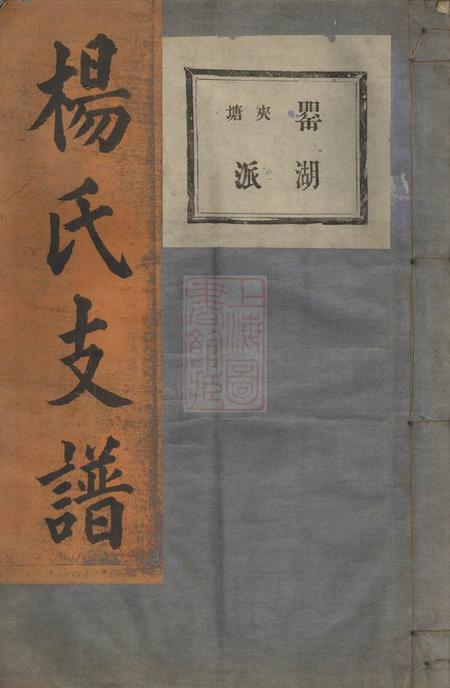 罌湖
夾塘
派
楊氏支譜
上海圖
書館